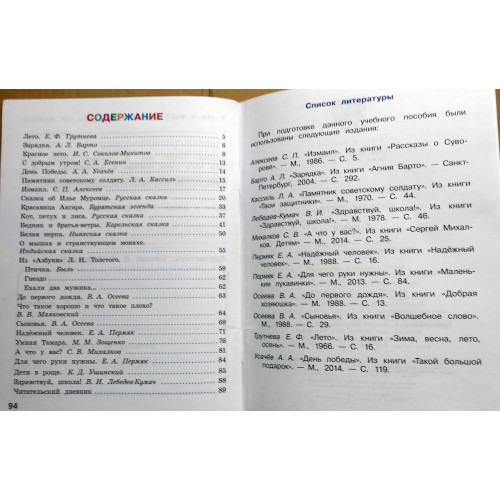 СОДЕРЖАНИЕ
Лето. Е. Ф. Трутнева 5
Зарядка. А. Л. Барто 6
Красное лето. И. С. Соколов-Микитов 8
С добрым утром! С. А. Есенин 11
День Победы. А. А. Усачёв 13
Памятник советскому солдату. Л. А. Кассиль 14
Измаил. С. П. Алексеев 17
Сказка об Илье Муромце. Русская сказка 20
Красавица Ангара. Бурятская легенда 33
Кот, петух и лиса. Русская сказка 37
Бедняк и братья-ветры. Карельская сказка 44
Белая ворна. Нивхская сказка 50
О мышах и странствующем монахе.
Индийская сказка 55
Из «Азбуки» Л. Н. Толстого.
Птичка. Быль 59
Гнездо 60
Ехали два мужика... 62
До первого дождя. В. А. Осеева 63
Что такое хорошо и что такое плохо?
В. В. Маяковский 64
Сыновья. В. А. Осеева 69
Надёжный человек. Е. А. Пермяк 71
Умная Тамара. М. М. Зощенко 76
А что у вас? С. В. Михалков 78
Для чего руки нужны. Е. А. Пермяк 83
Дети в роще. К. Д. Ушинский 85
Здравствуй, школа! В. И. Лебедев-Кумач 88
Читательский дневник 89
94
Список литературы
При подготовке данного учебного пособия были
использованы следующие издания:
Алексеев С. П. «Измаил». Из книги «Рассказы о Суво-
рове». — М., 1986. — С. 5.
Барто А. Л. «Зарядка». Из книги «Агния Барто». — Санкт-
Петербург, 2004. — С. 292.
Кассиль Л. А. «Памятник советскому солдату». Из книги
«Твои защитники». — М., 1970. — С. 44.
Лебедев-Кумач В. И. «Здравствуй, школа!». Из книги
«Здравствуй, школа!». — М., 1978. — С. 46.
Михалков С. В. «А что у вас?». Из книги «Сергей Михал-
ков. Детям» — М., 2014. — С. 25.
Пермяк Е. А. «Надёжный человек». Из книги «Надёжный
человек». — М., 1988. — С. 16.
Пермяк Е. А. «Для чего руки нужны». Из книги «Малень-
кие лукавинки». — М., 2013. — С. 84.
Осеева В. А. «До первого дождя». Из книги «Добрая
хозяюшка». — М., 1988. — С. 13.
Осеева В. А. «Сыновья». Из книги «Волшебное слово».
М., 1988. — С. 29.
Трутнева Е. Ф. «Лето». Из книги «Зима, весна, лето,
осень». — М., 1966. — С. 16.
Усачёв А. А. «День победы». Из книги «Такой большой
подарок». — М., 2014. — С. 119.